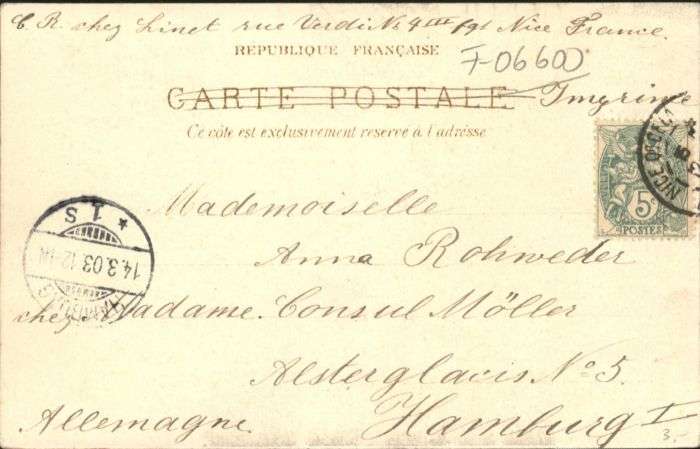 C. R. chez Linet rue Verdi No 4 III /gt Nice France.
RÉPUBLIQUE FRANÇAISE
F-06600
CARTE POSTALE Imprimé
Ce côté est exclusivement réservé à l'adresse
5c
POSTES
NICE
1 S
14.3.03.12-1N
Mademoiselle
Anna Rohweder
chez Madame Consul Möller
Alsterglacis No 5.
Allemagne. Hamburg I
3,-